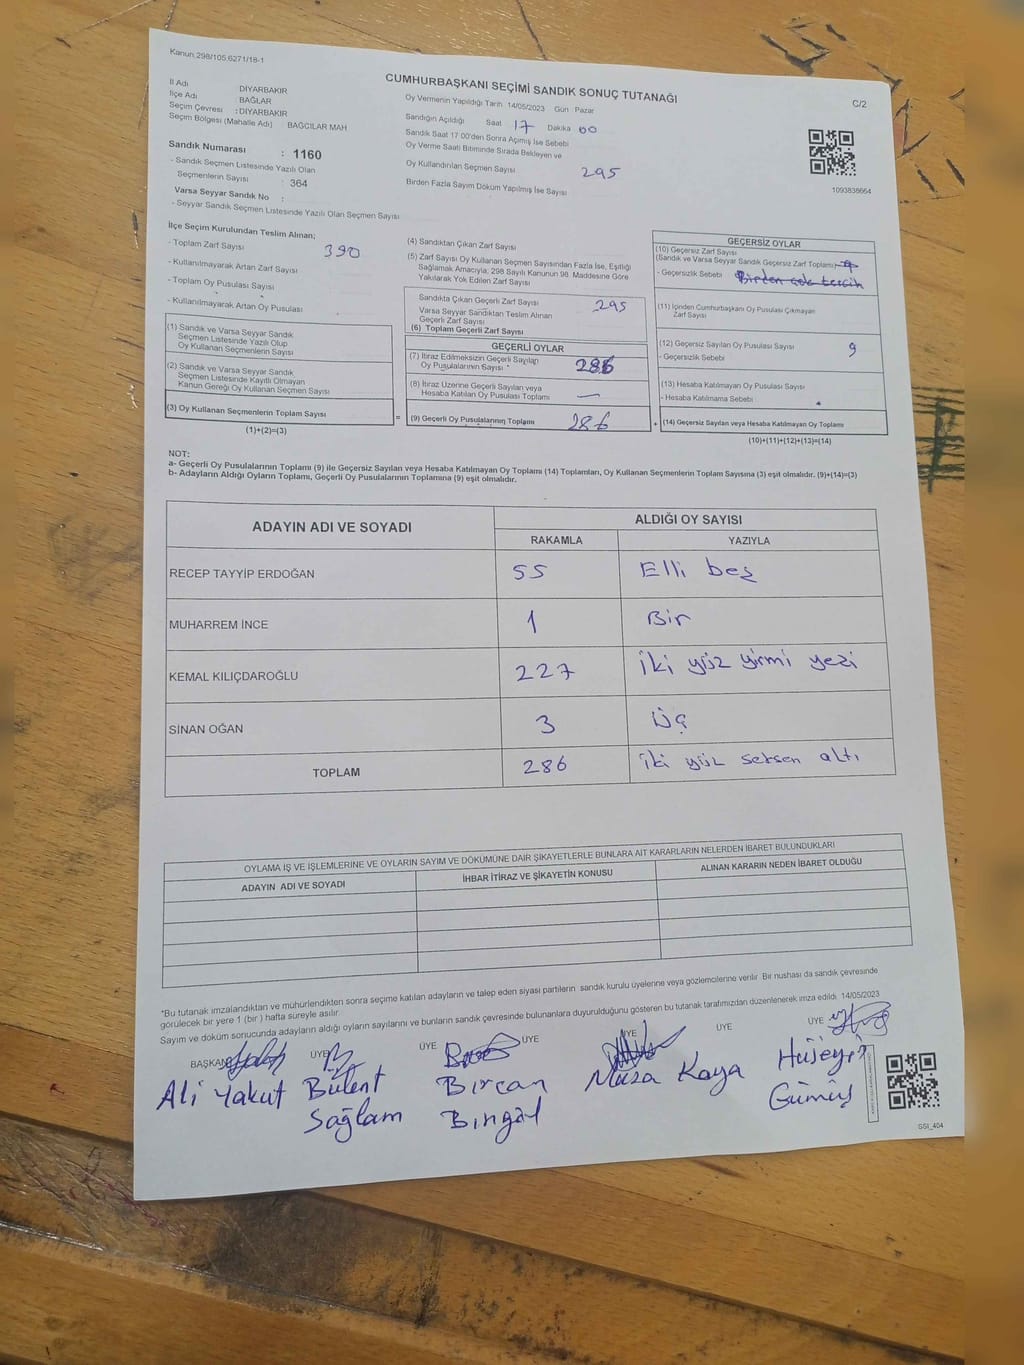 Kanun.298/105,6271/18-1
CUMHURBAŞKANI SEÇİMİ SANDIK SONUÇ TUTANAĞI
C/2
İl Adı : DİYARBAKIR
İlçe Adı : BAĞLAR
Seçim Çevresi : DİYARBAKIR
Seçim Bölgesi (Mahalle Adı) : BAĞCILAR MAH
Sandık Numarası : 1160
- Sandık Seçmen Listesinde Yazılı Olan
Seçmenlerin Sayısı : 364
Varsa Seyyar Sandık No :
- Seyyar Sandık Seçmen Listesinde Yazılı Olan Seçmen Sayısı
Oy Vermenin Yapıldığı Tarih 14/05/2023 Gün Pazar
Sandığın Açıldığı Saat 17 Dakika 00
Sandık Saat 17:00'den Sonra Açımış İse Sebebi
Oy Verme Saati Bitiminde Sırada Bekleyen ve
Oy Kullandırılan Seçmen Sayısı 295
Birden Fazla Sayım Döküm Yapılmış İse Sayısı
1093838664
İlçe Seçim Kurulundan Teslim Alınan;
- Toplam Zarf Sayısı 390
- Kullanılmayarak Artan Zarf Sayısı
- Toplam Oy Pusulası Sayısı
- Kullanılmayarak Artan Oy Pusulası
(1) Sandık ve Varsa Seyyar Sandık
Seçmen Listesinde Yazılı Olup
Oy Kullanan Seçmenlerin Sayısı
(2) Sandık ve Varsa Seyyar Sandık
Seçmen Listesinde Kayıtlı Olmayan
Kanun Gereği Oy Kullanan Seçmen Sayısı
(3) Oy Kullanan Seçmenlerin Toplam Sayısı
(1)+(2)=(3)
=
(4) Sandıktan Çıkan Zarf Sayısı
(5) Zarf Sayısı Oy Kullanan Seçmen Sayısından Fazla İse, Eşitliği
Sağlamak Amacıyla, 298 Sayılı Kanunun 98. Maddesine Göre
Yakılarak Yok Edilen Zarf Sayısı
Sandıkta Çıkan Geçerli Zarf Sayısı 295
Varsa Seyyar Sandıktan Teslim Alınan
Geçerli Zarf Sayısı
(6) Toplam Geçerli Zarf Sayısı
GEÇERLİ OYLAR
(7) İtiraz Edilmeksizin Geçerli Sayılan
Oy Pusulalarının Sayısı 286
(8) İtiraz Üzerine Geçerli Sayılan veya
Hesaba Katılan Oy Pusulası Toplamı —
(9) Geçerli Oy Pusulalarının Toplamı 286
+
GEÇERSİZ OYLAR
(10) Geçersiz Zarf Sayısı
(Sandık ve Varsa Seyyar Sandık Geçersiz Zarf Toplamı)
- Geçersizlik Sebebi Birden çok tercih
(11) İçinden Cumhurbaşkanı Oy Pusulası Çıkmayan
Zarf Sayısı
(12) Geçersiz Sayılan Oy Pusulası Sayısı 9
- Geçersizlik Sebebi
(13) Hesaba Katılmayan Oy Pusulası Sayısı
- Hesaba Katılmama Sebebi
(14) Geçersiz Sayılan veya Hesaba Katılmayan Oy Toplamı
(10)+(11)+(12)+(13)=(14)
NOT:
a- Geçerli Oy Pusulalarının Toplamı (9) ile Geçersiz Sayılan veya Hesaba Katılmayan Oy Toplamı (14) Toplamları, Oy Kullanan Seçmenlerin Toplam Sayısına (3) eşit olmalıdır. (9)+(14)=(3)
b- Adayların Aldığı Oyların Toplamı, Geçerli Oy Pusulalarının Toplamına (9) eşit olmalıdır.
ADAYIN ADI VE SOYADI
ALDIĞI OY SAYISI
RAKAMLA YAZIYLA
RECEP TAYYİP ERDOĞAN 55 Elli beş
MUHARREM İNCE 1 Bir
KEMAL KILIÇDAROĞLU 227 İki yüz yirmi yezi
SİNAN OĞAN 3 Üç
TOPLAM 286 İki yüz seksen altı
OYLAMA İŞ VE İŞLEMLERİNE VE OYLARIN SAYIM VE DÖKÜMÜNE DAİR ŞİKAYETLERLE BUNLARA AİT KARARLARIN NELERDEN İBARET BULUNDUKLARI
ADAYIN ADI VE SOYADI İHBAR İTİRAZ VE ŞİKAYETİN KONUSU ALINAN KARARIN NEDEN İBARET OLDUĞU
*Bu tutanak imzalandıktan ve mühürlendikten sonra seçime katılan adayların ve talep eden siyasi partilerin sandık kurulu üyelerine veya gözlemcilerine verilir. Bir nushası da sandık çevresinde
görülecek bir yere 1 (bir) hafta süreyle asılır.
Sayım ve döküm sonucunda adayların aldığı oyların sayılarını ve bunların sandık çevresinde bulunanlara duyurulduğunu gösteren bu tutanak tarafımızdan düzenlenerek imza edildi. 14/05/2023
BAŞKAN ÜYE ÜYE ÜYE ÜYE ÜYE ÜYE
Ali Yakut Bülent Sağlam Bircan Bingöl Musa Kaya Hüseyin Gümüş
GSI_404